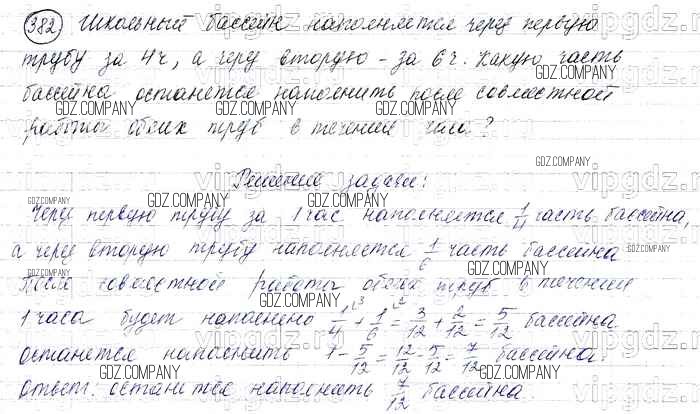 382 Школьный бассейн наполняется через первую
трубу за 4ч, а через вторую - за 6ч. Какую часть
бассейна останется наполнить после совместной
работы обеих труб в течении часа?
Решение задачи:
Через первую трубу за 1 час наполняется 1/4 часть бассейна,
а через вторую трубу наполняется 1/6 часть бассейна
После совместной работы обеих труб в течении
1 часа будет наполнено 1/4 + 1/6 = 3/12 + 2/12 = 5/12 бассейна
останется наполнить 1 - 5/12 = 12/12 - 5/12 = 7/12 бассейна.
ответ: останется наполнить 7/12 бассейна.